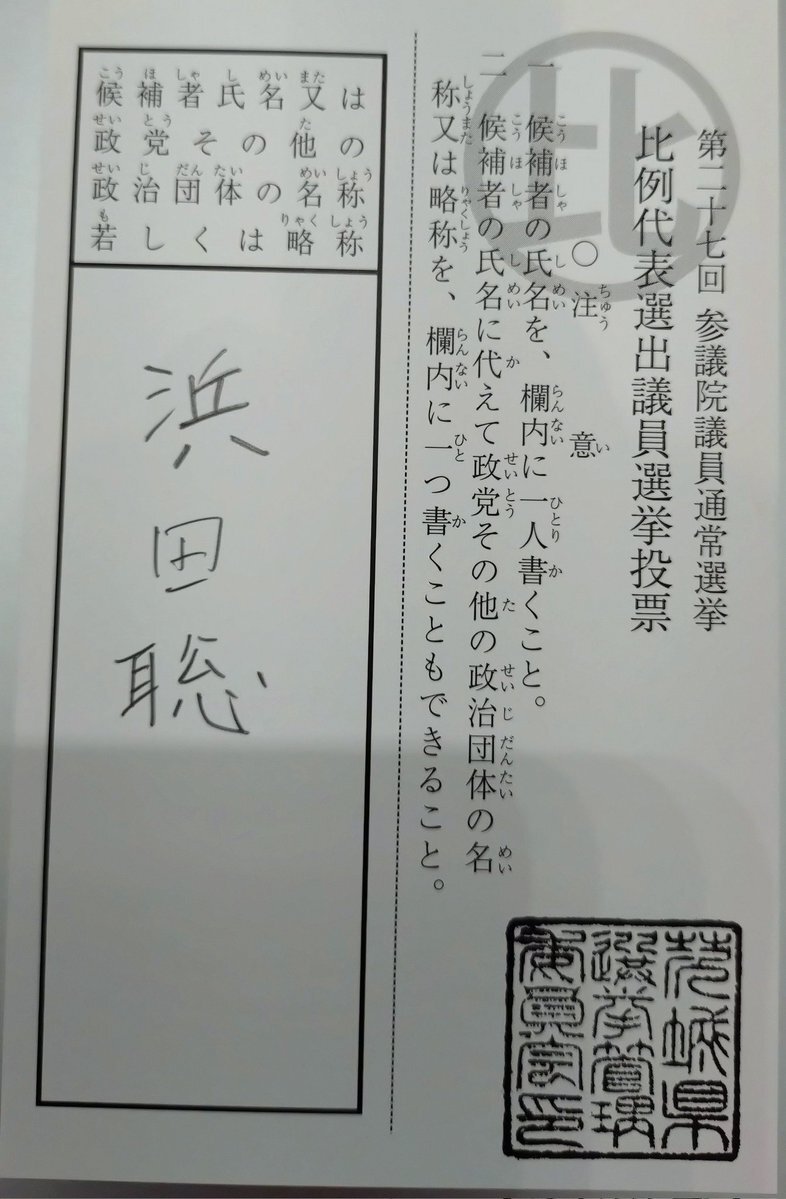 第二十七回 参議院議員通常選挙
比例代表選出議員選挙投票
比
○注意
一 候補者の氏名を、欄内に一人書くこと。
二 候補者の氏名に代えて政党その他の政治団体の名
称又は略称を、欄内に一つ書くこともできること。
候補者氏名又は
政党その他の
政治団体の名称
若しくは略称
浜田聡
茨城県
選挙管理
委員会印